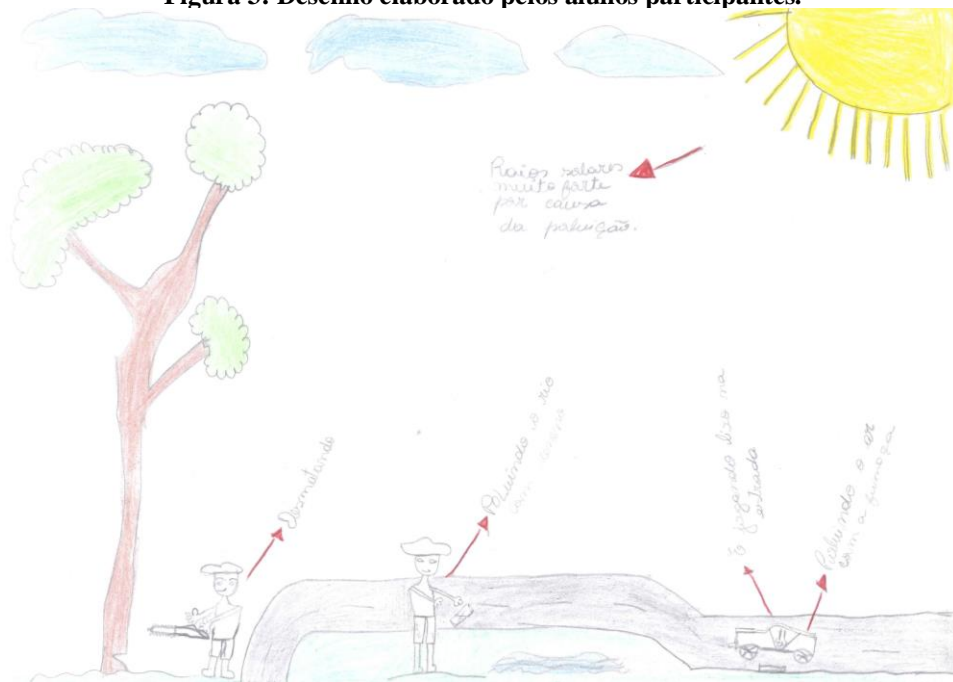 Figura 5: Desenho elaborado pelos alunos participantes.
Raios solares
muito forte
por causa
da poluição.
Desmatando
Poluindo o rio
com
E jogando lixo na
estrada
Poluindo o ar
com a fumaça